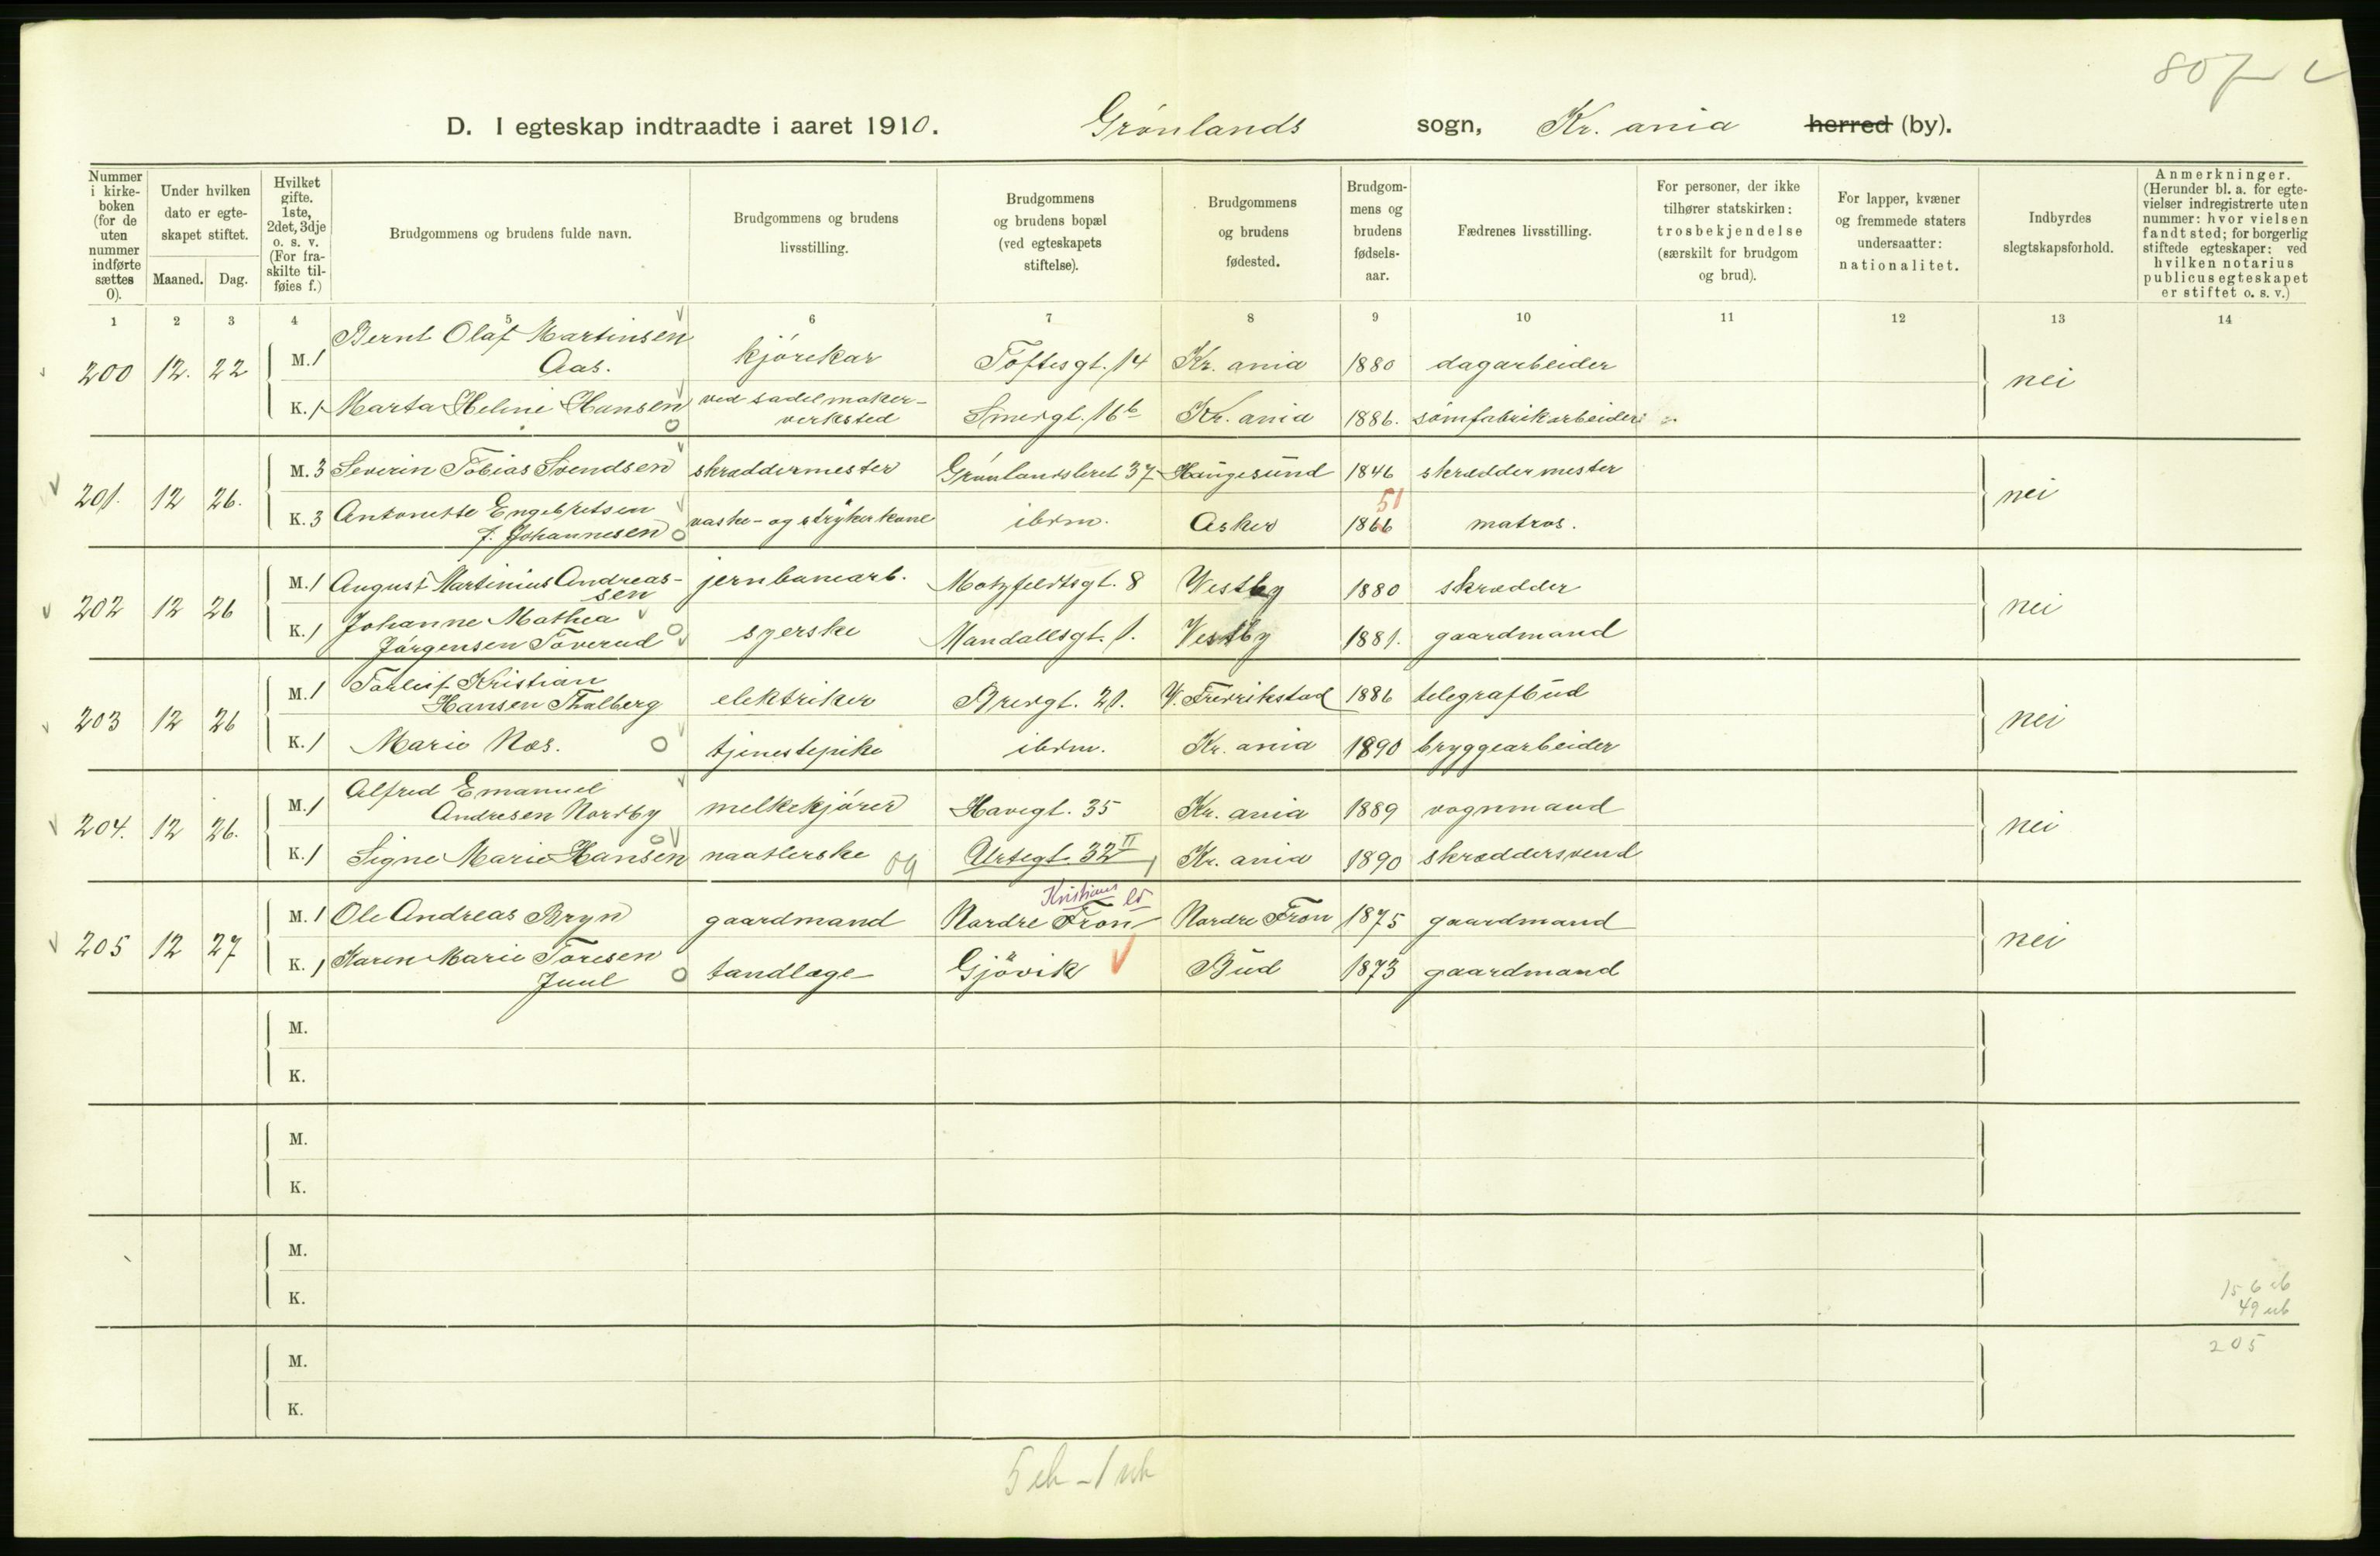 807
D. I egteskap indtraadte i aaret 1910. Grønlands sogn, Kr. ania herred (by).
Nummer i kirkeboken (for de uten nummer indførte sættes 0).
Under hvilken dato er egteskapet stiftet.
Maaned. Dag.
Hvilket gifte. 1ste, 2det, 3dje o. s. v. (For fraskilte tilføies f.)
Brudgommens og brudens fulde navn.
Brudgommens og brudens livsstilling.
Brudgommens og brudens bopæl (ved egteskapets stiftelse).
Brudgommens og brudens fødested.
Brudgommens og brudens fødselsaar.
Fædrenes livsstilling.
For personer, der ikke tilhører statskirken: trosbekjendelse (særskilt for brudgom og brud).
For lapper, kvæner og fremmede staters undersaatter: nationalitet.
Indbyrdes slegtskapsforhold.
Anmerkninger. (Herunder bl. a. for egtevielser indregistrerte uten nummer: hvor vielsen fandt sted; for borgerlig stiftede egteskaper: ved hvilken notarius publicus egteskapet er stiftet o. s. v.)
1 2 3 4 5 6 7 8 9 10 11 12 13 14
200 12. 22 M. 1 Bernt Olaf Martinsen Aas. kjørekar Toftesgt. 14 Kr. ania 1880 dagarbeider nei
K. 1 Marta Heline Hansen ved sadelmakerverksted Smergt. 16b Kr. ania 1886. sømfabrikarbeider
201. 12 26. M. 3 Severin Tobias Svendsen skræddermester Grønlandsleret 37 Haugesund 1846 skræddermester nei
K. 3 Antonette Engebretsen f. Johannesen vaske- og strykerkone ibdm. Asker 1866 51 matros.
202 12 26 M. 1 August Martinius Andreassen jernbanearb. Motzfeldtsgt. 8 Westby 1880 skrædder nei
K. 1 Johanne Mathea Jørgensen Toverud syerske Mandallsgt. 1. Vestby 1881. gaardmand
203 12 26 M. 1 Torleif Kristian Hansen Thalberg elektriker Bredgt. 21. V. Fredrikstad 1886 telegrafbud nei
K. 1 Marie Næs. tjenestepike ibdm. Kr. ania 1890 bryggearbeider
204. 12 26. M. 1 Alfred Emanuel Andresen Nordby melkekjører Havegt. 35 Kr. ania 1889 vognmand nei
K. 1 Signe Marie Hansen naatlerske og Urtegt. 32 II Kr. ania 1890 skræddersvend
205 12 27 M. 1 Ole Andreas Bryn gaardmand Nordre Fron Kristians Nordre Fron 1875 gaardmand nei
K. 1 Karen Marie Toresen Juul tandlæge Gjøvik Bud 1873 gaardmand
M.
K.
M.
K.
M.
K.
M.
K.
156 eb
49 ub
205
5 eb - 1 ub